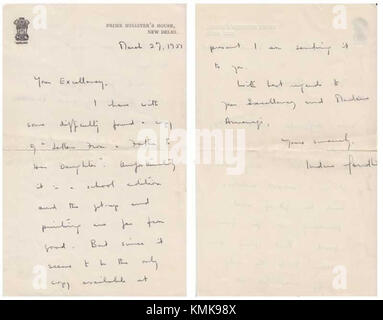 PRIME MINISTER'S HOUSE,
NEW DELHI.
March 27, 1951
Your Excellency,
I have with
some difficulty found a copy
of "Letters from a Father to
his Daughter". Unfortunately
it is a school edition
and the get-up and
printing are far from
good. But since it
seems to be the only
copy available at
present I am sending it
to you.
With best regards to
your Excellency and Madame
Yours sincerely,
Indira Gandhi
alamy
alamy
KMK98X